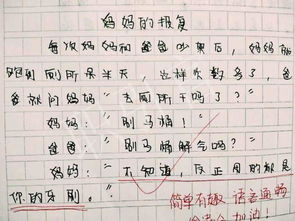 妈妈的报复
每次妈妈和爸爸吵架后，妈妈就
跑到厕所呆半天，这样次数多了，爸
爸就问妈妈“去厕所干吗了？”
妈妈：“刷马桶！”
爸爸：“刷马桶解气吗？”
妈妈：“不知道，反正用的都是
你的牙刷。”
简单有趣 语言通畅